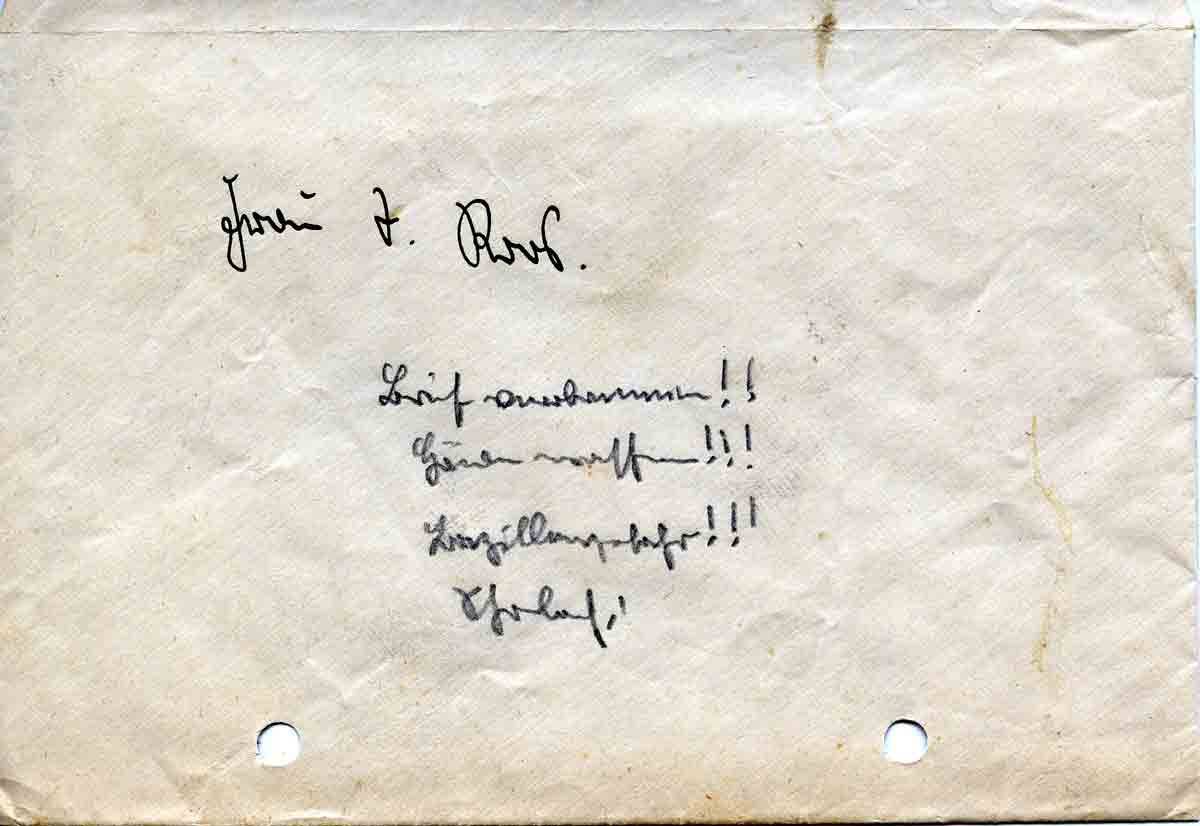 Frau J. Roos.
Brief verbrennen!!
Hände waschen!!!
Bazillengefahr!!!
Scharlach!